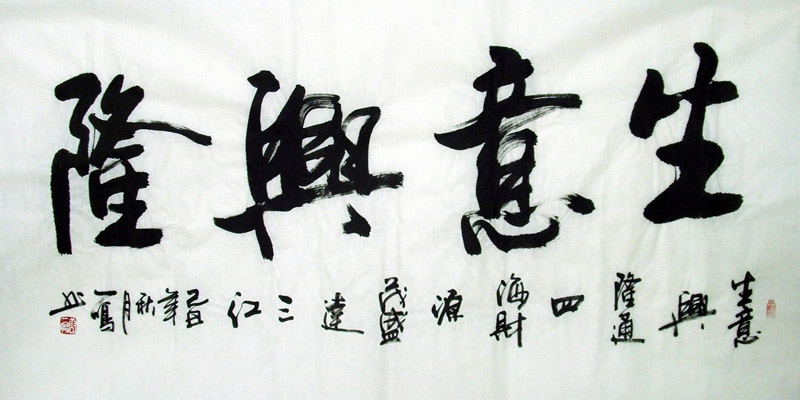 生意興隆
生意興隆通四海財源茂盛達三江己丑年秋月